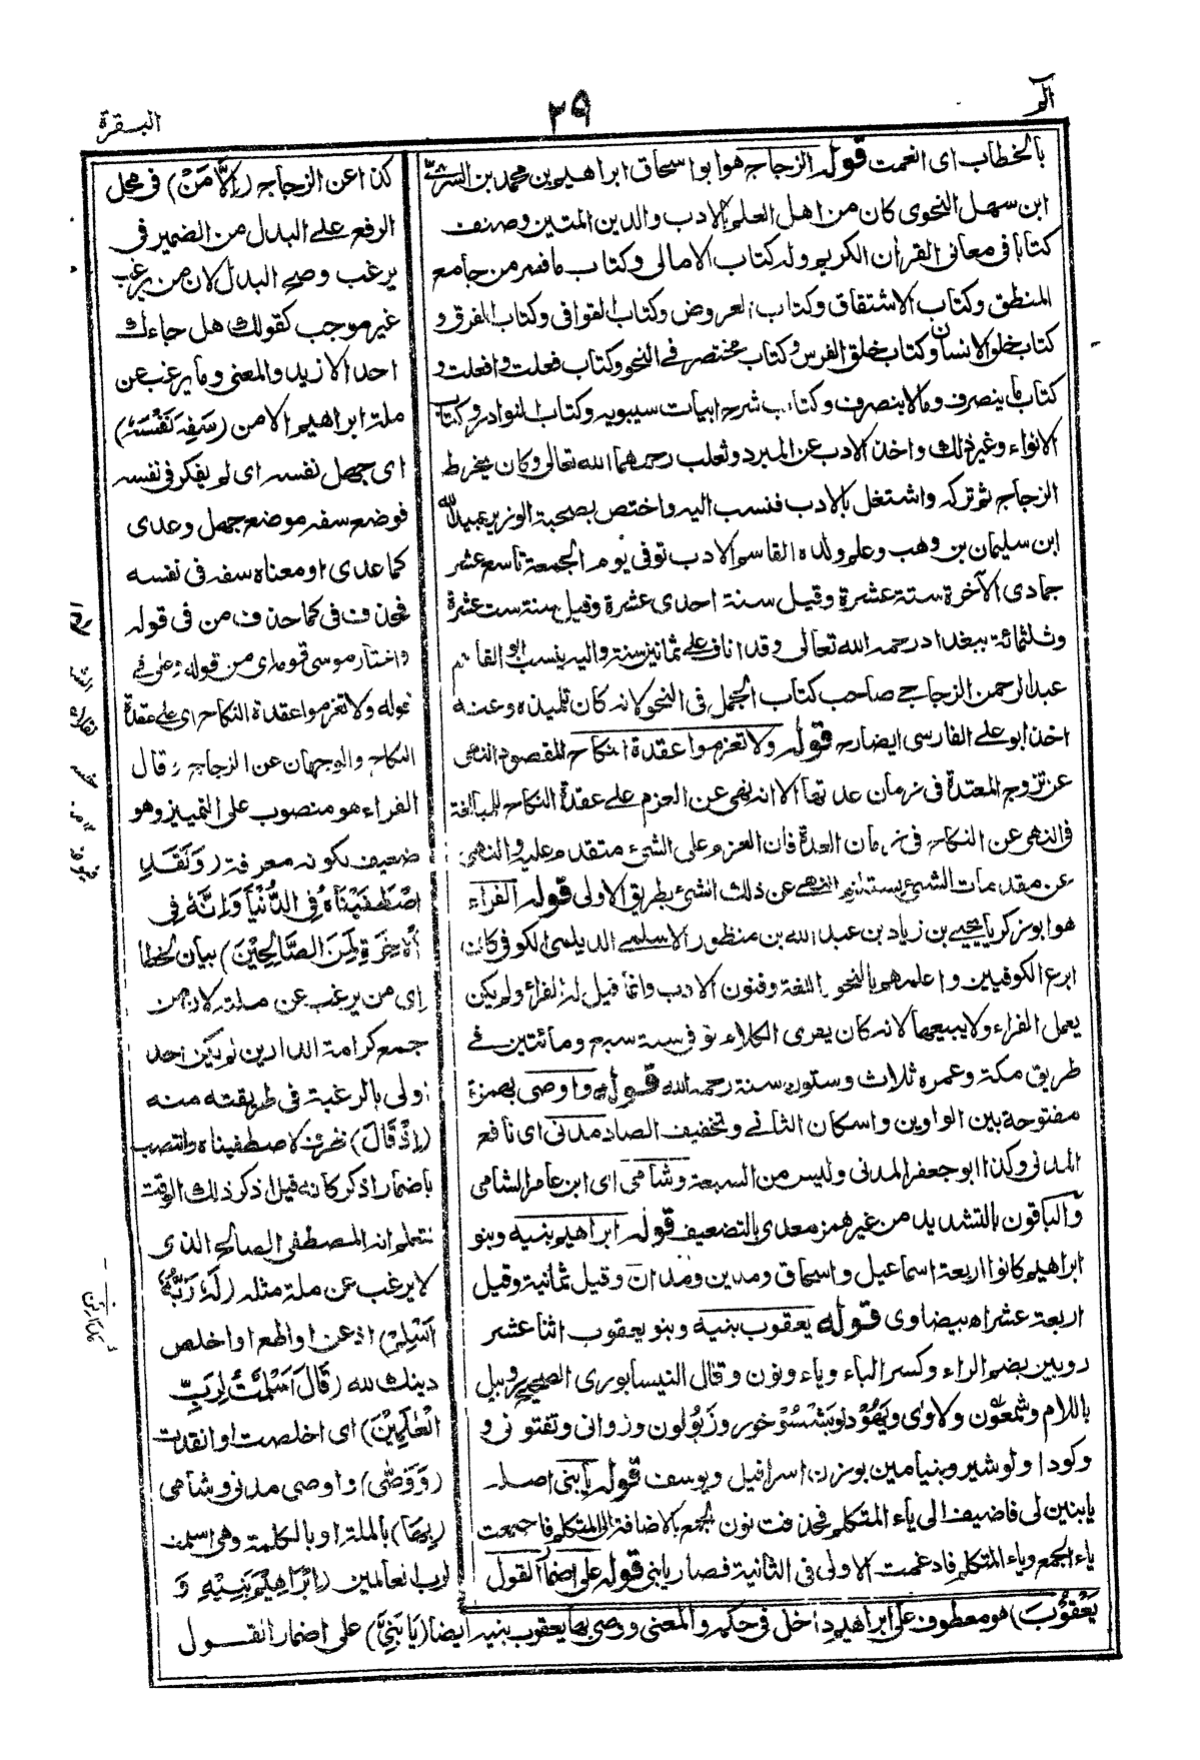 آلم
٢٩
البقرة
بالخطاب اى انعمت قوله الزجاج هو ابو اسحاق ابراهيم بن محمد بن السرى
ابن سهل النحوى كان من اهل العلم بالادب والدين المتين وصنف
كتابا فى معانى القران الكريم وله كتاب الامالى وكتاب ما فسر من جامع
المنطق وكتاب الاشتقاق وكتاب العروض وكتاب القوافى وكتاب الفرق و
كتاب خلق الانسان وكتاب خلق الفرس وكتاب مختصر فى النحو وكتاب فعلت وافعلت و
كتاب ما ينصرف وما لا ينصرف وكتاب شرح ابيات سيبويه وكتاب النوادر وكتاب
الانواء وغير ذلك واخذ الادب عن المبرد وثعلب رحمهما الله تعالى وكان يخرط
الزجاج ثم تركه واشتغل بالادب فنسب اليه واختص بصحبة الوزير عبيد الله
ابن سليمان بن وهب وعلم ولده القاسم الادب توفى يوم الجمعة تاسع عشر
جمادى الآخرة ستة عشرة وقيل سنة احدى عشرة وقيل سنة ست عشرة
وثلثمائة ببغداد رحمه الله تعالى وقد اناف على ثمانين سنة واليه ينسب ابو القاسم
عبد الرحمن الزجاجى صاحب كتاب الجمل فى النحو لانه كان تلميذه وعنه
اخذ ابو على الفارسى ايضا رح قوله ولا تعزموا عقدة النكاح المقصود النهى
عن تزوج المعتدة فى زمان عدتها الا انه نهى عن العزم على عقدة النكاح للمبالغة
فى النهى عن النكاح فى زمان العدة فان العزم على الشئ متقدم عليه والنهى
عن مقدمات الشئ يستلزم النهى عن ذلك الشئ بطريق الاولى قوله الفراء
هو ابو زكريا يحيى بن زياد بن عبد الله بن منظور الاسلمى الديلمى الكوفى كان
ابرع الكوفيين واعلمهم بالنحو واللغة وفنون الادب وانما قيل له الفراء ولم يكن
يعمل الفراء ولا يبيعها لانه كان يفرى الكلام توفى سنة سبع ومائتين فى
طريق مكة وعمره ثلاث وستون سنة رحمه الله قوله واوصى بهمزة
مفتوحة بين الواوين واسكان الثانى وتخفيف الصاد مدنى اى نافع
المدنى وكذا ابو جعفر المدنى وليس من السبعة وشامى اى ابن عامر الشامى
والباقون بالتشديد من غير همز معدى بالتضعيف قوله ابراهيم بنيه وبنو
ابراهيم كانوا اربعة اسماعيل واسحاق ومدين ومدان وقيل ثمانية وقيل
اربعة عشر اه بيضاوى قوله يعقوب بنيه وبنو يعقوب اثنا عشر
روبين بضم الراء وكسر الباء وياء ونون وقال النيسابورى الصحيح روبيل
باللام وشمعون ولاوى ويهوذ ويشسوخور وزبولون وزوانى وتفتونى و
وكودا واوشير وبنيامين بوزن اسرافيل ويوسف قوله يا بنى اصله
يا بنين لى فاضيف الى ياء المتكلم فحذفت نون الجمع بالاضافة الى المتكلم فاجتمعت
ياء الجمع وياء المتكلم فادغمت الاولى فى الثانية فصار يا بنى قوله على اضمار القول
كذا عن الزجاج (إلا من) فى محل
الرفع على البدل من الضمير فى
يرغب وصح البدل لان من يرغب
غير موجب كقولك هل جاءك
احد الا زيد والمعنى وما يرغب عن
ملة ابراهيم الا من (سفه نفسه)
اى جهل نفسه اى لم يفكر فى نفسه
فوضع سفه موضع جهل وعدى
كما عدى او معناه سفه فى نفسه
فحذف فى كما حذف من فى قوله
واختار موسى قومه اى من قومه وعلى فى
قوله ولا تعزموا عقدة النكاح اى على عقدة
النكاح والوجهان عن الزجاج وقال
الفراء هو منصوب على التمييز وهو
ضعيف لكونه معرفة (ولقد
اصطفيناه فى الدنيا وانه فى
الآخرة لمن الصالحين) بيان لخطا
اى من يرغب عن ملته لان من
جمع كرامة الدارين لم يكن احد
اولى بالرغبة فى طريقته منه
(إذ قال) ظرف لاصطفيناه وانتصب
باضمار اذكر كانه قيل اذكر ذلك الوقت
لتعلم انه المصطفى الصالح الذى
لا يرغب عن ملة مثله (له ربه
أسلم) اذعن او اطع او اخلص
دينك لله (قال أسلمت لرب
العلمين) اى اخلصت او انقدت
(ووصى) واوصى مدنى وشامى
(بها) بالملة او بالكلمة وهى اسلمت
لرب العلمين (إبراهيم بنيه و
يعقوب) هو معطوف على ابراهيم داخل فى حكمه والمعنى ووصى بها يعقوب بنيه ايضا (يا بنى) على اضمار القول